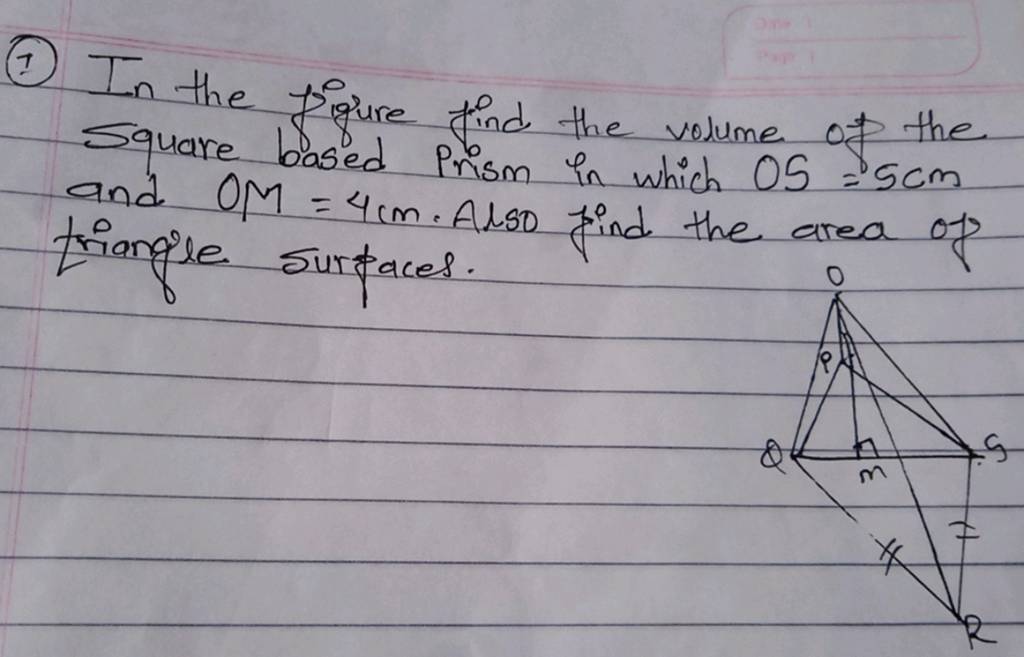 1 In the figure find the volume of the
square based Prism in which OS = 5cm
and OM = 4cm. Also find the area of
triangle surfaces.
O
P
Q
M
S
R